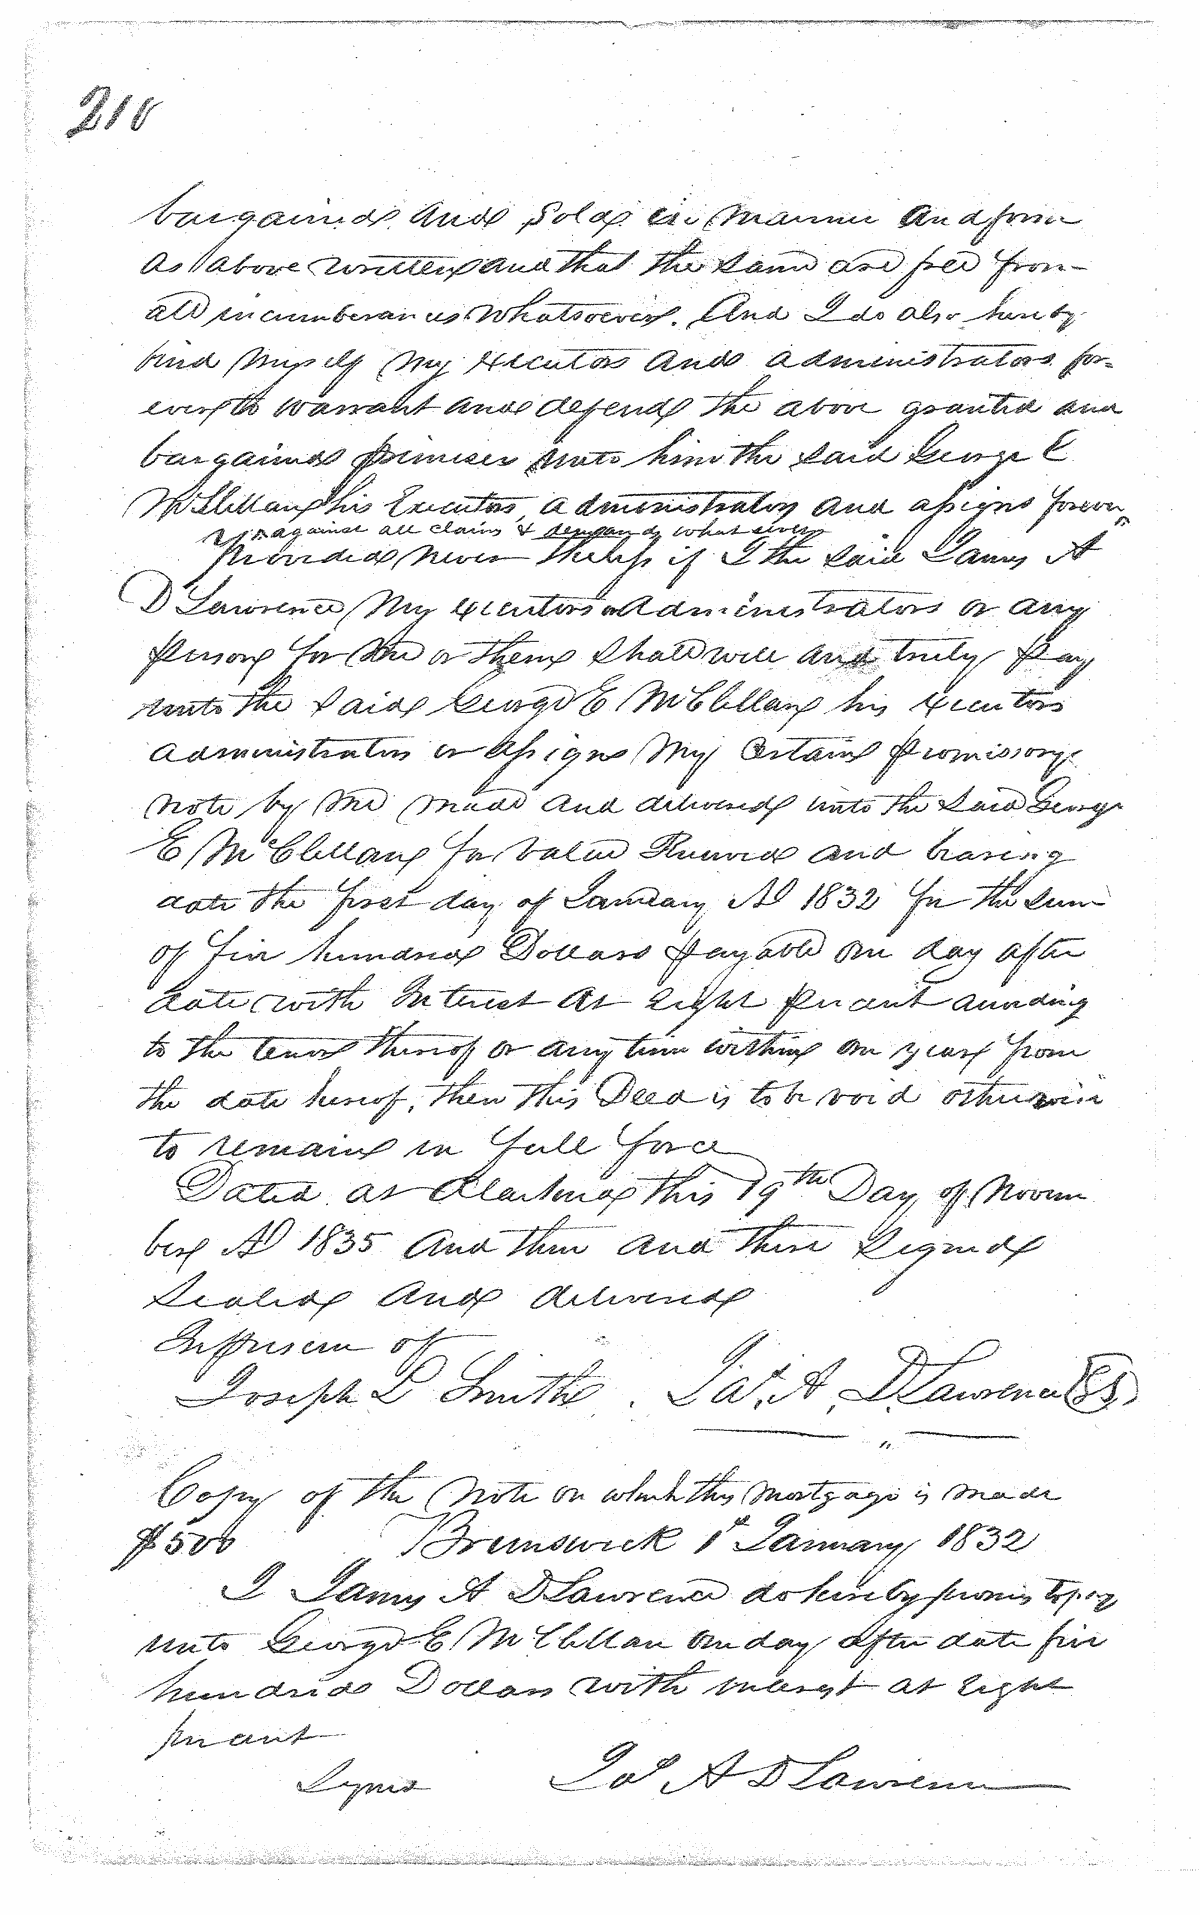 210
bargained and Sold in Manner and form
as above written and that the same are free from
all incumberances whatsoever. And I do also hereby
bind Myself My Executors and administrators for-
ever to Warrant and defend the above granted and
bargained premises unto him the said George E
McClellan his Executors administrators and assigns forever
against all claims & demands whatsoever
Provided Never theless if I the said James A
D Lawrence My executors or Administrators or any
Person for Me or them shall well and truly Pay
unto the said George E McClellan his Executors
Administrators or Assigns My Certain Promissory
note by Me made and delivered unto the said George
E McClellan for Value Received and bearing
date the first day of January AD 1832 for the sum
of five hundred Dollars payable one day after
date with Interest at Eight Per cent according
to the tenor thereof or any time within one year from
the date hereof, then this Deed is to be void otherwise
to remain in full force
Dated at Alachua this 19th Day of Novem
ber AD 1835 And then and there Signed
Sealed and delivered
In Presence of
Joseph L Smith. Jas. A. D Lawrence
Copy of the Note on which this Mortgage is made
$500 Brunswick 1st January 1832
I James A D Lawrence do hereby promis to pay
unto George E McClellan one day after date five
hundred Dollars with interest at Eight
per cent
Signed Jas A D Lawrence